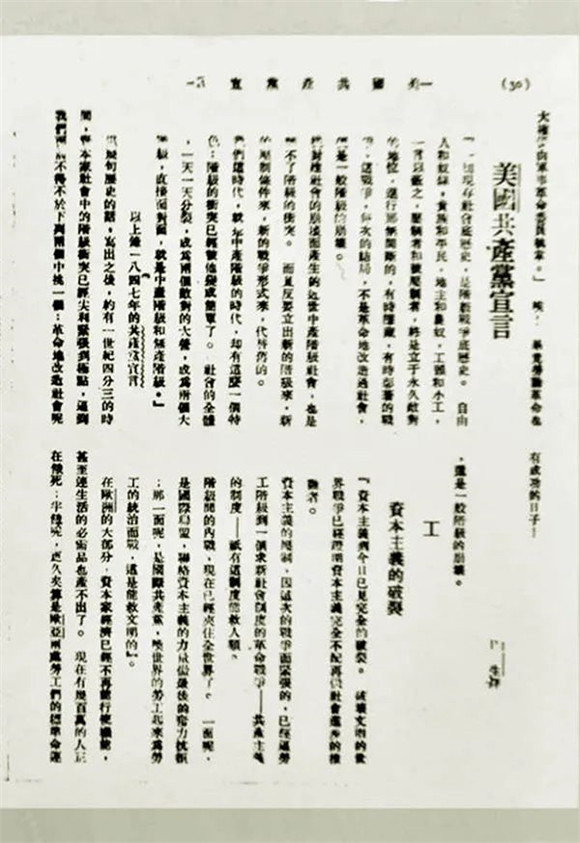 (30)
美國共產黨宣言
大權由軍事革命委員執掌。」唉!畢竟勞動革命也
有成功的日子!
美國共產黨宣言
生譯
『一切現存社會底歷史，是階級戰爭底歷史。自由
人和奴隸，貴族和平民，地主和農奴，工頭和小工，
一言以蔽之，壓制者和被壓制者，終是立于永久敵對
的地位，進行那無間斷的，有時隱藏，有時彰著的戰
爭，這戰爭，每次的結局，不是革命地改造過社會，
便是一般階級的崩壞。
從封建社會的崩壞而產生的近世中產階級社會，也是
解不了階級的衝突。而且反要立出新的階級來，新
的壓制條件來，新的戰爭形式來，代替舊的。
我們這時代，就是中產階級的時代，却有這麼一個特
色：階級的衝突已經被他變成簡單了。社會的全體
，一天一天分裂，成爲兩個敵對的大營，成爲兩個大
階級，直接面對面，就是中產階級和無產階級。』
以上錄一八四七年的共產黨宣言
這幾句歷史的話，寫出之後，約有一世紀四分三的時
間，資本家社會中的階級衝突已經尖利緊張到極點，逼到
我們不得不於下列兩個中挑一個：革命地改造社會呢
，還是一般階級的崩壞。
工
資本主義的破裂
『資本主義到今日已見完全的破裂。破壞文明的世
界戰爭已經證明資本主義完全不配再做社會進步的推
動者。
資本主義的壓制，因這次的戰爭而緊張的，已經逼勞
工階級到一個求新社會制度的革命戰爭——共產主義
的制度——祇有這制度能救人類。
階級間的內戰，現在已經夾住全世界了。一面呢，
是國際聯盟，聯絡資本主義的力量做最後的奮力抗拒
；那一面呢，是國際共產黨，喚世界的勞工起來爲勞
工的統治而戰，這是能救文明的』。
在歐洲的大部分，資本家經濟已經不再能行使機能，
甚至連生活的必需品也產不出了。現在有幾百萬的人民
在餓死；半飽呢，更久夾算是歐亞兩處勞工們的標準命運